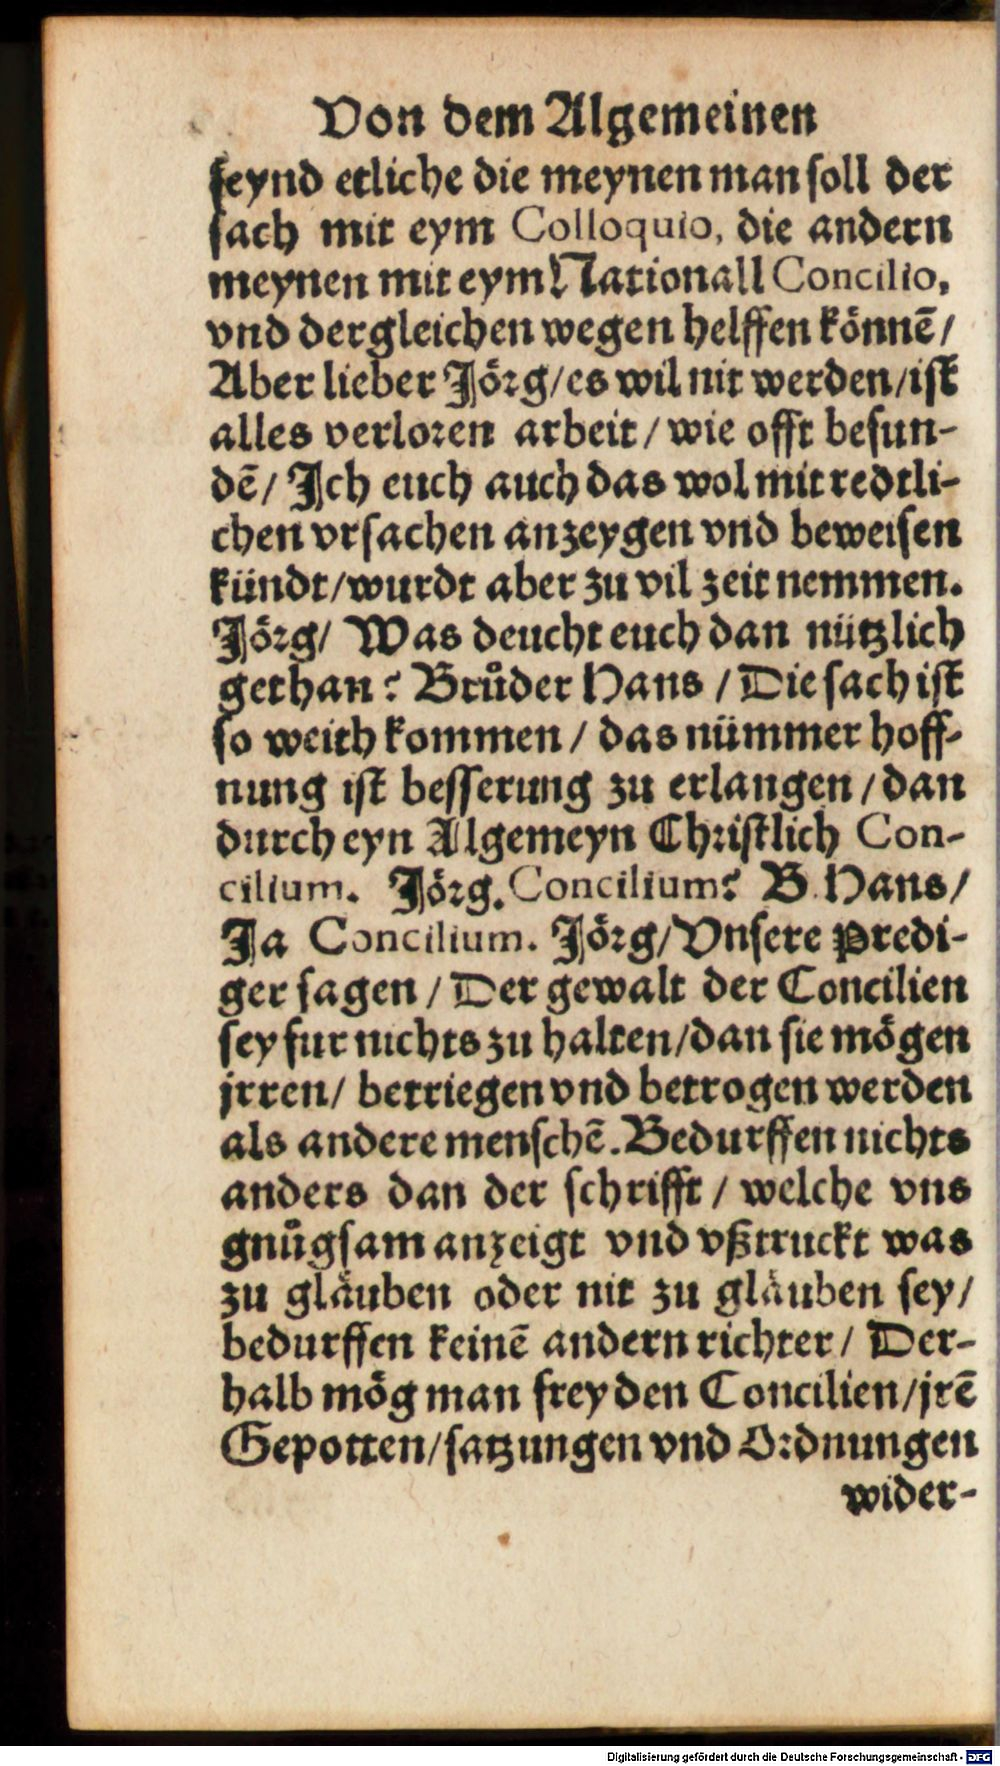 Von dem Algemeinen
ſeynd etliche die meynen man ſoll der
ſach mit eym Colloquio, die andern
meynen mit eym Nationall Concilio,
vnd dergleichen wegen helffen könnē/
Aber lieber Jörg/es wil nit werden/iſt
alles verloꝛen arbeit/wie offt befun-
dē/ Ich euch auch das wol mit redtli-
chen vrſachen anzeygen vnd beweiſen
kündt/wurdt aber zu vil zeit nemmen.
Jöꝛg/ Was deucht euch dan nützlich
gethan? Brůder Hans / Die ſach iſt
ſo weith kommen / das nümmer hoff-
nung iſt beſſerung zu erlangen / dan
durch eyn Algemeyn Chꝛiſtlich Con-
cilium. Jöꝛg. Concilium? B. Hans/
Ja Concilium. Jöꝛg/Vnſere Predi-
ger ſagen / Der gewalt der Concilien
ſey fur nichts zu halten/dan ſie mögen
jrren/ betriegen vnd betrogen werden
als andere menſchē. Bedurffen nichts
anders dan der ſchrifft / welche vns
gnůgſam anzeigt vnd vßtruckt was
zu gläuben oder nit zu gläuben ſey/
bedurffen keinē andern richter/ Der-
halb mög man frey den Concilien/jrē
Gepotten/ſatzungen vnd Oꝛdnungen
wider-
Digitalisierung gefördert durch die Deutsche Forschungsgemeinschaft - DFG